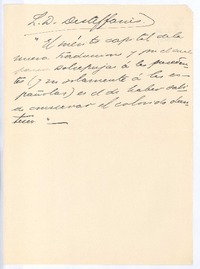 L. D. Desteffanis
"El mérito capital de la
nueva traducción y por el cual
sobrepuja á las
(y no solamente á las es-
pañolas) es el de haber sabi-
do conservar el colorido dan-
tesco"—